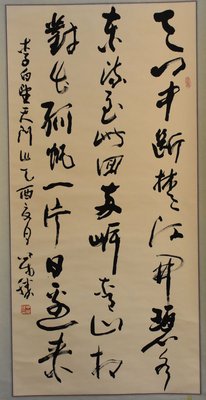 天门中斷楚江開碧水
東流至此回両岸青山相
對出孤帆一片日邊来
李白望天门山乙酉亥月